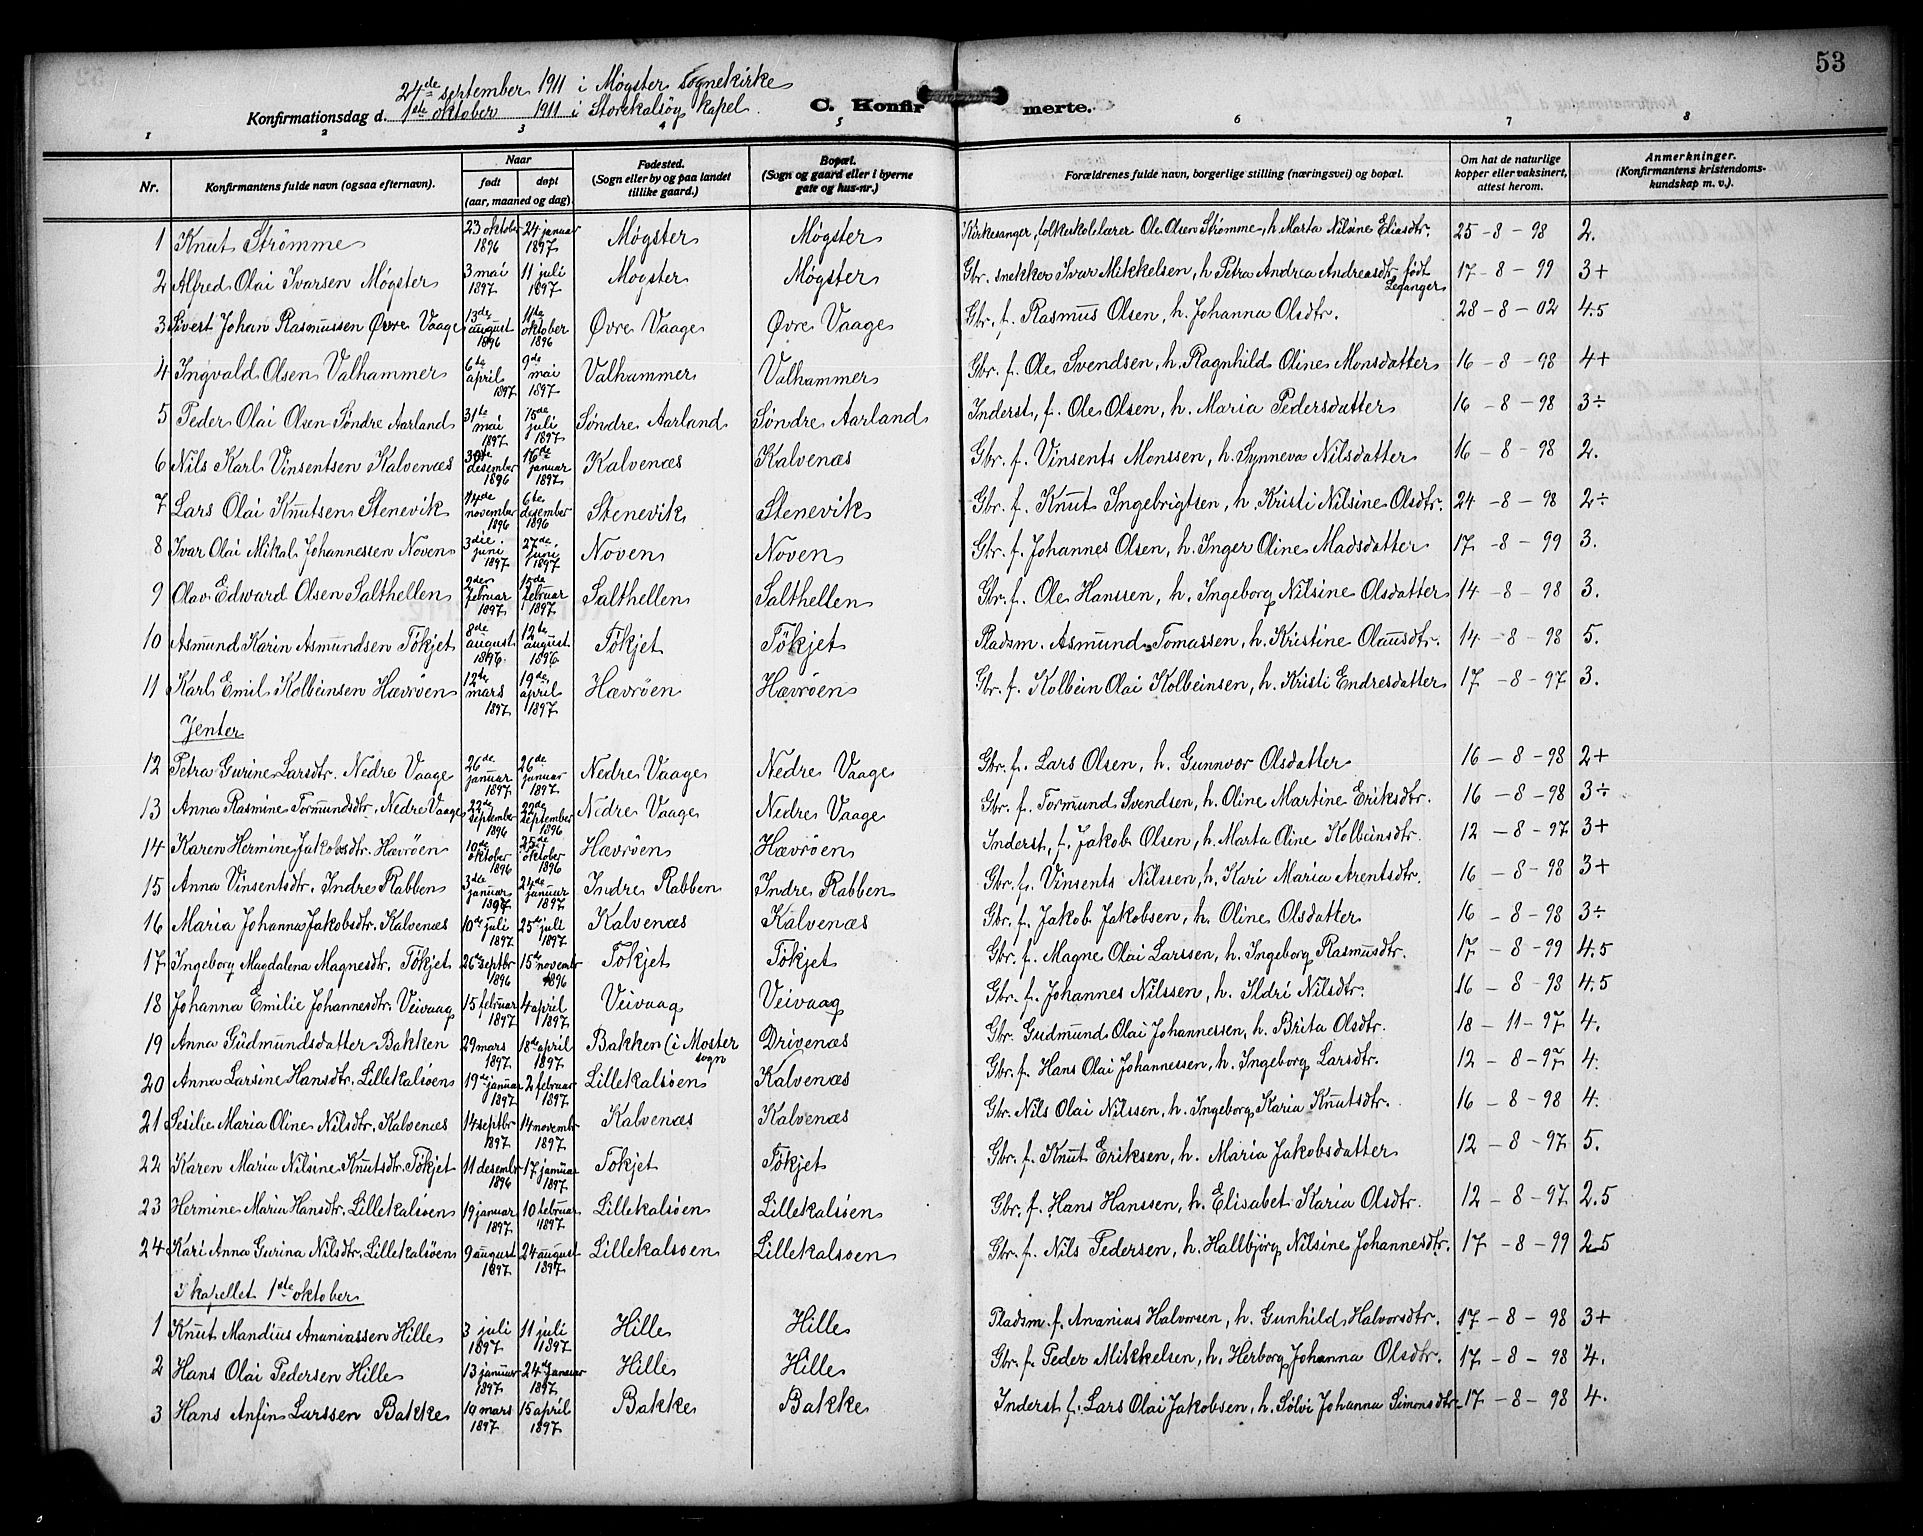 53
24de september 1911 i Møgster sognekirke
Konfirmationsdag d. 1ste oktober 1911 i Storekalsøy kapel.
C. Konfirmerte.
1 2 3 4 5 6 7 8
Nr. Konfirmantens fulde navn (ogsaa efternavn). Naar født døpt (aar, maaned og dag). Fødested. (Sogn eller by og paa landet tillike gaard.) Bopæl. (Sogn og gaard eller i byerne gate og hus-nr.) Forældrenes fulde navn, borgerlige stilling (næringsvei) og bopæl. Om hat de naturlige kopper eller vaksinert, attest herom. Anmerkninger. (Konfirmantens kristendomskundskap m. v.).
1 Knut Strømme 23 oktober 1896 24 januar 1897 Møgster Møgster Kirkesanger, folkeskolelærer Ole Olsen Strømme, h. Marta Nilsine Eliasdtr. 25-8-98 2.
2 Alfred Olai Ivarsen Møgster 3 mai 1897 11 juli 1897 Møgster Møgster Gbr. snekker Ivar Mikkelsen, h. Petra Andrea Andreasdtr født Leganger 17-8-99 3+
3 Sivert Johan Rasmussen Øvre Vaage 13de august 1896 11te oktober 1896 Øvre Vaage Øvre Vaage Gbr. f. Rasmus Olsen, h. Johanna Olsdtr. 28-8-02 4.5
4 Ingvald Olsen Valhammer 6te april 1897 9de mai 1897 Valhammer Valhammer Gbr. f. Ole Svendsen, h. Ragnhild Oline Monsdatter 16-8-98 4+
5 Peder Olai Olsen Søndre Aarland 31te mai 1897 15de juli 1897 Søndre Aarland Søndre Aarland Inderst, f. Ole Olsen, h. Maria Pedersdatter 16-8-98 3÷
6 Nils Karl Vinsentsen Kalvenæs 30te desember 1896 16de januar 1897 Kalvenæs Kalvenæs Gbr. f. Vinsents Monssen, h. Synneva Nilsdatter 16-8-98 2.
7 Lars Olai Knutsen Stenevik 14de november 1896 6te desember 1896 Stenevik Stenevik Gbr. f. Knut Ingebrigtsen, h. Kristi Nilsine Olsdtr. 24-8-98 2÷
8 Ivar Olai Mikal Johannessen Noven 3die juni 1897 27de juni 1897 Noven Noven Gbr. f. Johannes Olsen, h. Inger Oline Madsdatter 17-8-99 3.
9 Olav Edward Olsen Salthellen 2den februar 1897 15de februar 1897 Salthellen Salthellen Gbr. f. Ole Hanssen, h. Ingeborg Nilsine Olsdatter 14-8-98 3.
10 Asmund Karin Asmundsen Tökjet 8de august 1896. 12te august 1896 Tökjet Tökjet Pladsm. Asmund Tomassen, h. Kristine Olausdtr. 14-8-98 5.
11 Karl Emil Kolbeinsen Hævröen 12te mars 1897 19de april 1897 Hævröen Hævröen Gbr. f. Kolbein Olai Kolbeinsen, h. Kristi Endresdatter 17-8-97 3.
Jenter
12 Petra Gurine Larsdtr. Nedre Vaage 26de januar 1897 26de januar 1897 Nedre Vaage Nedre Vaage Gbr. f. Lars Olsen, h. Gunnvor Olsdatter 16-8-98 2+
13 Anna Rasmine Tormundsdtr. Nedre Vaage 22de september 1896 22de september 1896 Nedre Vaage Nedre Vaage Gbr. f. Tormund Svendsen, h. Oline Martine Eriksdtr. 16-8-98 3÷
14 Karen Hermine Jakobsdtr. Hævröen 10de oktober 1896 25de oktober 1896 Hævröen Hævröen Inderst, f. Jakob Olsen, h. Marta Oline Kolbeinsdtr. 12-8-97 3+
15 Anna Vinsentsdtr. Indre Rabben 3de januar 1897 24de januar 1897 Indre Rabben Indre Rabben Gbr. f. Vinsents Nilssen, h. Kari Maria Arentsdtr. 16-8-98 3+
16 Maria Johanna Jakobsdtr. Kalvenæs 10de juli 1897 25de juli 1897 Kalvenæs Kalvenæs Gbr. f. Jakob Jakobsen, h. Oline Olsdatter 16-8-98 3÷
17 Ingeborg Magdalena Magnesdtr. Tökjet 26de septbr 1896 15de novembr 1896 Tökjet Tökjet Gbr. f. Magne Olai Larssen, h. Ingeborg Rasmusdtr. 17-8-99 4.5
18 Johanna Emilie Johannesdtr. Veivaag 15 februar 1897 4 april 1897 Veivaag Veivaag Gbr. f. Johannes Nilssen, h. Ildri Nilsdtr. 16-8-98 4.5
19 Anna Gudmundsdatter Bakken 29 mars 1897 18de april 1897 Bakken (i Moster sogn Drivenæs Gbr. Gudmund Olai Johannessen, h. Brita Olsdtr. 18-11-97 4.
20 Anna Larsine Hansdtr. Lillekalsöen 19de januar 1897 2 februar 1897 Lillekalsöen Kalvenæs Gbr. f. Hans Olai Johannessen, h. Ingeborg Larsdtr. 12-8-97 4.
21 Sesilie Maria Oline Nilsdtr. Kalvenæs 14 septbr 1897 14 novembr 1897 Kalvenæs Kalvenæs Gbr. Nils Olai Nilssen, h. Ingeborg Karia Knutsdtr. 16-8-98 4.
22 Karen Maria Nilsine Knutsdtr. Tökjet 11 desembr 1896 17 januar 1897 Tökjet Tökjet Gbr. f. Knut Eriksen, h. Maria Jakobsdatter 12-8-97 5.
23 Hermine Maria Hansdtr. Lillekalsöen 19 januar 1897 10 februar 1897 Lillekalsöen Lillekalsöen Gbr. f. Hans Hanssen, h. Elisabet Karia Olsdtr. 12-8-97 2.5
24 Kari Anna Gurina Nilsdtr. Lillekalsöen 9 august 1897 24 august 1897 Lillekalsoen Lillekalsoen Gbr. f. Nils Pedersen, h. Hallbjörg Nilsine Johannesdtr. 17-8-99 2.5
I kapellet 1ste oktober
1 Knut Mandius Ananiassen Hille 3 juli 1897 11 juli 1897 Hille Hille Pladsm. f. Ananias Halvorsen, h. Gunhild Halvorsdtr. 17-8-98 3+
2 Hans Olai Pedersen Hille 13 januar 1897 24de januar 1897 Hille Hille Gbr. f. Peder Mikkelsen, h. Herborg Johanna Olsdtr. 17-8-98 4.
3 Hans Anfin Larssen Bakke 19 mars 1897 15 april 1897 Bakke Bakke Inderst f. Lars Olai Jakobsen, h. Sølvi Johanna Simonsdtr 17-8-98 4.